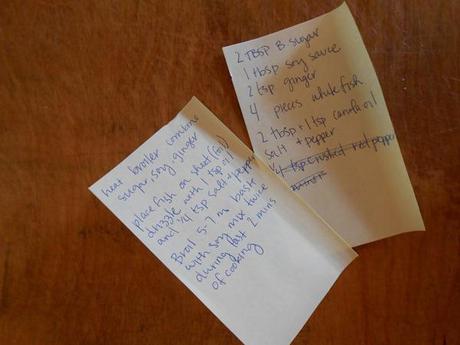 2 TBSP B sugar
1 tbsp soy sauce
2 tsp ginger
4 pieces whitefish
2 tbsp + 1 tsp canola oil
salt + pepper
1/4 tsp crushed red pepper
heat broiler combine
sugar, soy, ginger
place fish on sheet (foil)
drizzle with 1 tsp oil
and 1/4 tsp salt + pepper
Broil 5-7 m baste
with soy mix twice
during last 2 mins
of cooking